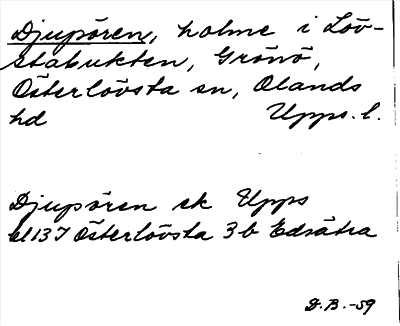 Djupören, holme i Löv-
stabukten, Gränö,
Österlövsta sn, Olands
hd Upps. l.
Djupören ek Upps
bl 137 Österlövsta 3b Edsätra
D.B.-59